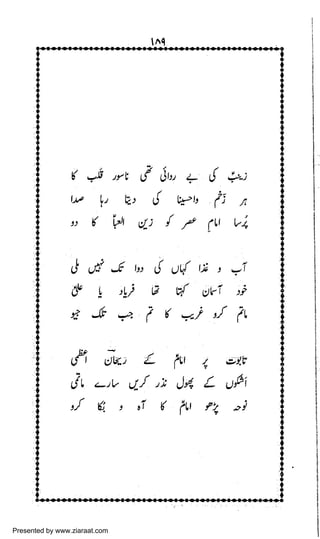 ۱۸۹
زینبؑ کی بے ردائی تھی ناسور قلب کا
ہر زخم واحسینا کی دیتا رہا صدا
پُرسا امام عصر کو زین العباؑ کا دو
آب و غذا کہاں کی دوا تک نہیں ملی
خود آسمان کہتا تھا فریاد یا علیؑ
ماتم کرو غریب کا تم جب تلک جیو
تابوت پر امامؑ کے ریحانؔ اعظمی
اشکوں کے پھول نذر کریں سارے ماتمی
نوحہ پڑھو امامؑ کا آہ و بُکا کرو
Presented by www.ziaraat.com